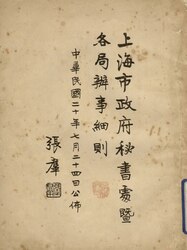 上海市政府秘書處暨
各局辦事細則
中華民國二十年七月二十四日公佈
張羣